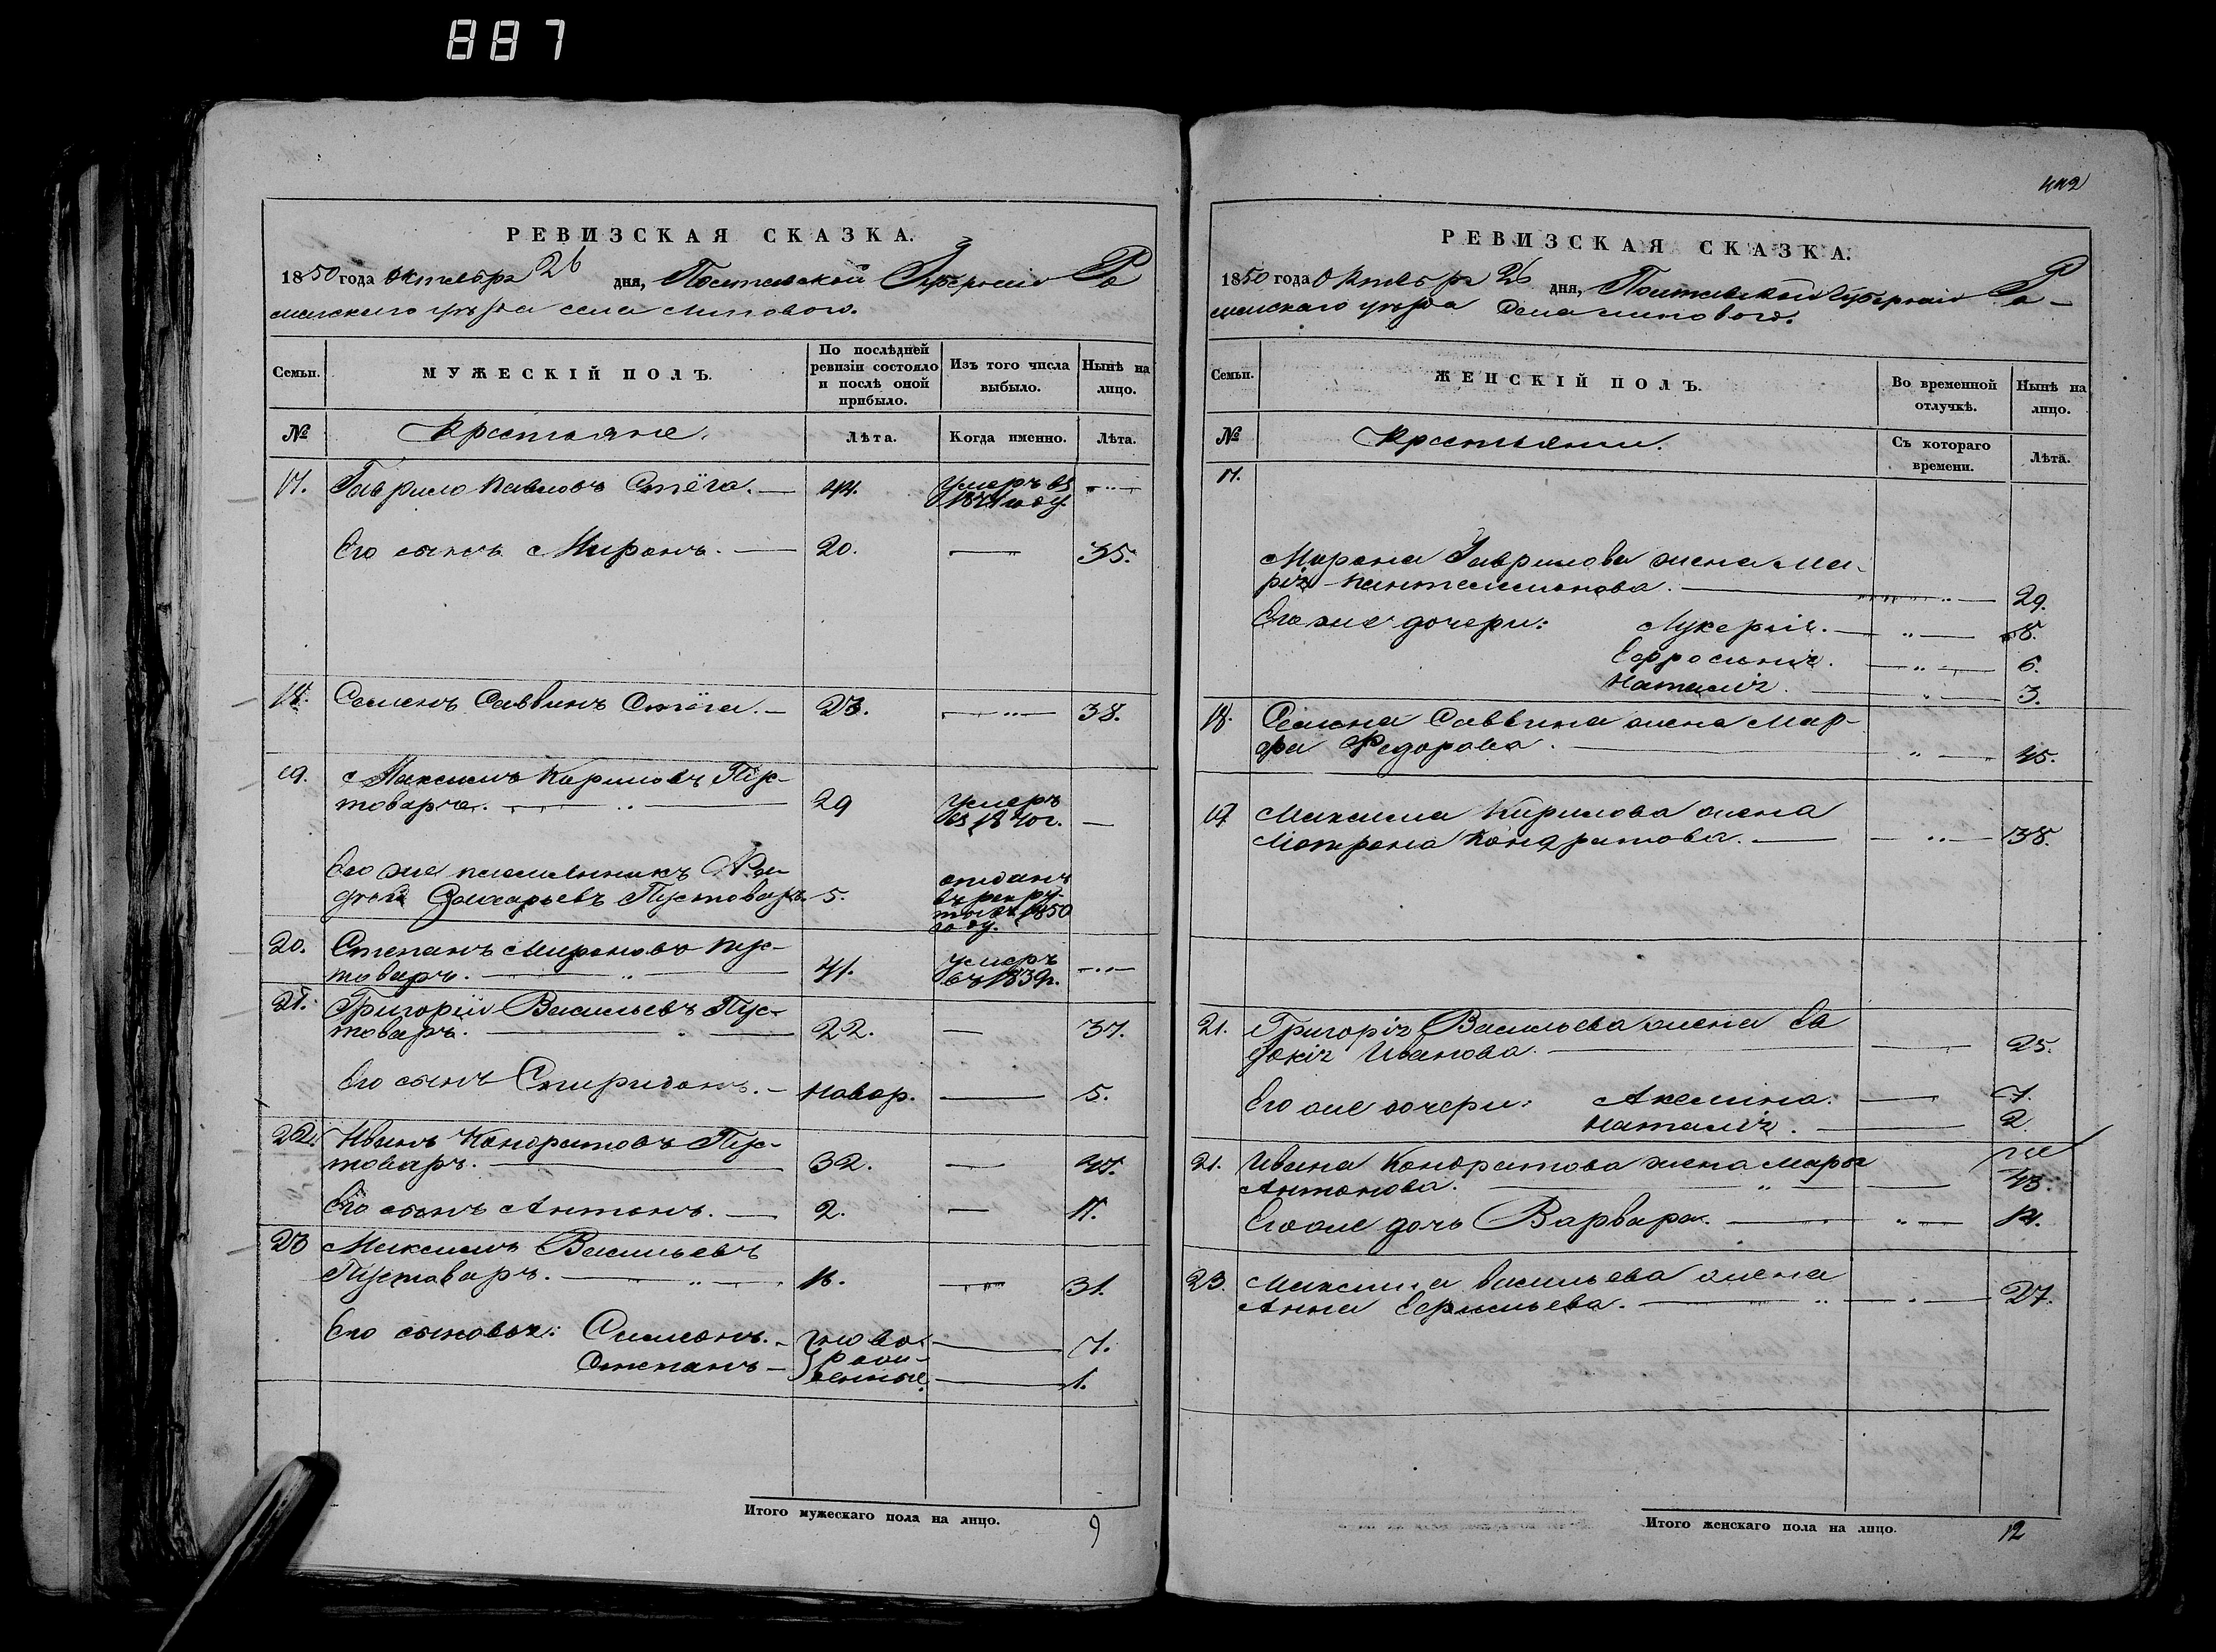 887
РЕВИЗСКАЯ СКАЗКА.
1850 года Октября 26 дня, Полтавской Губернiи Ро
менскаго уѣзда села Липового.
Семьи.
МУЖЕСКІЙ ПОЛЪ.
По послѣдней ревизіи состояло и послѣ оной прибыло.
Изъ того числа выбыло.
Нынѣ на лицо.
№
Крестьяне.
Лѣта.
Когда именно.
Лѣта.
17. Гаврило Павловъ Стёга. 44. умеръ въ
1841 году.
Его сынъ Миронъ. 20. 35.
18. Семенъ Саввинъ Стёга. 23. 38.
19. Максимъ Кириловъ Пус-
товаръ. 29 умеръ
въ 1840 г.
Его же племянникъ
Захарьевъ Пустоваръ. 5. отданъ
въ рекру-
ты въ 1850
году.
20. Степанъ Мироновъ Пус-
товаръ. 41. умеръ
въ 1839 г.
21. Григорій Васильевъ Пус-
товаръ. 22. 37.
Его сынъ Спиридонъ. новор. 5.
22. Иванъ Кондратовъ Пус-
товаръ. 32. 47.
Его сынъ Антонъ. 2. 17.
23 Максимъ Васильевъ
Пустоваръ. 16. 31.
Его сыновья: Симонъ. ново- 7.
Степанъ рож-
денные. 1.
Итого мужескаго пола на лицо. 9
442
РЕВИЗСКАЯ СКАЗКА.
1850 года Октября 26 дня, Полтавской Губернiи Ро-
менскаго уѣзда Села Липового.
Семьи.
ЖЕНСКІЙ ПОЛЪ.
Во временной отлучкѣ.
Нынѣ на лицо.
№
Крестьяни.
Съ котораго времени.
Лѣта.
17.
Мирона Гаврилова жена Ма-
рія Пантелимонова. 29.
Его же дочери: Лукерія. 8.
Ефросинія. 6.
Наталія. 3.
18. Семена Саввина жена Мар-
фа Федорова. 45.
19 Максима Кирилова жена
Мотрона Кондратова. 38.
21. Григорія Васильева жена Ев
докія Иванова. 25.
Его же дочери: Акелина. 7.
Наталія. 2
21. Ивана Кондратова жена Марѳа
Антонова. 43.
Его же дочь Варвара. 14.
23. Максима Васильева жена
Анна 27.
Итого женскаго пола на лицо. 12